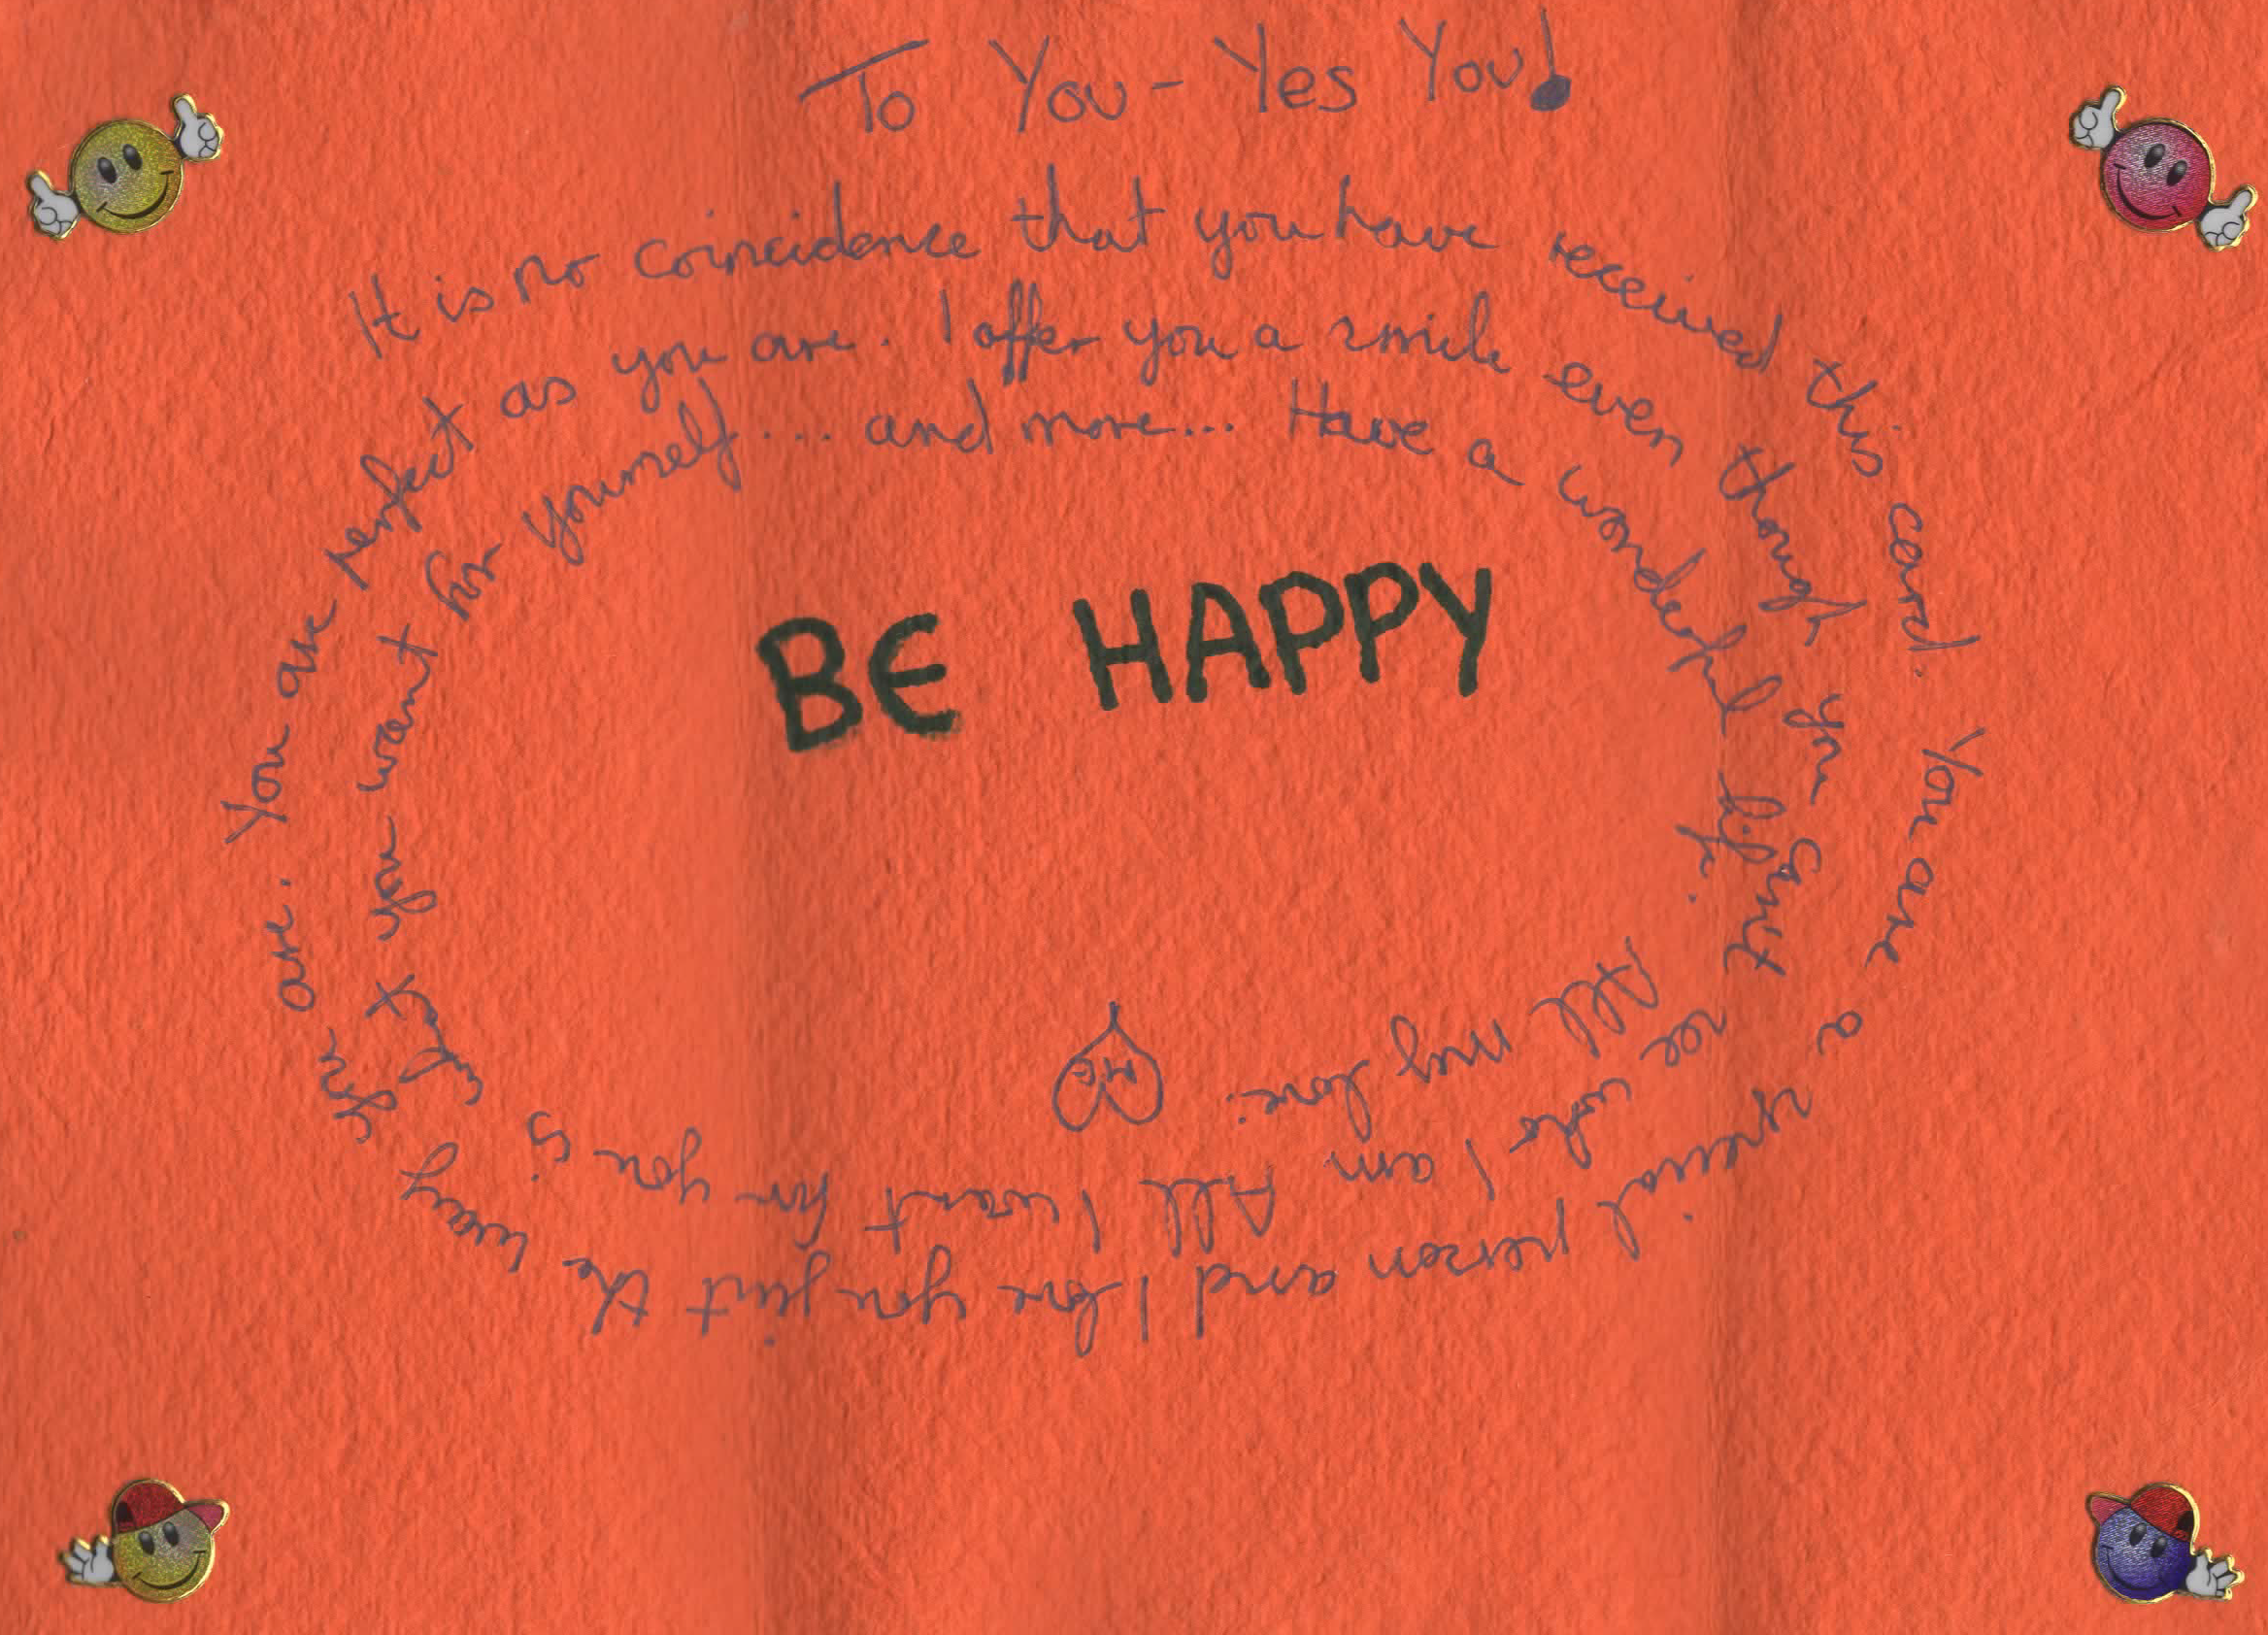 To You - Yes You!
It is no coincidence that you have received this card. You are a special person and I love you just the way you are. You are perfect as you are. I offer you a smile even though you can't see who I am All I want for you is what you want for yourself.... and more... Have a wonderful life.
All my love.
ME
BE HAPPY